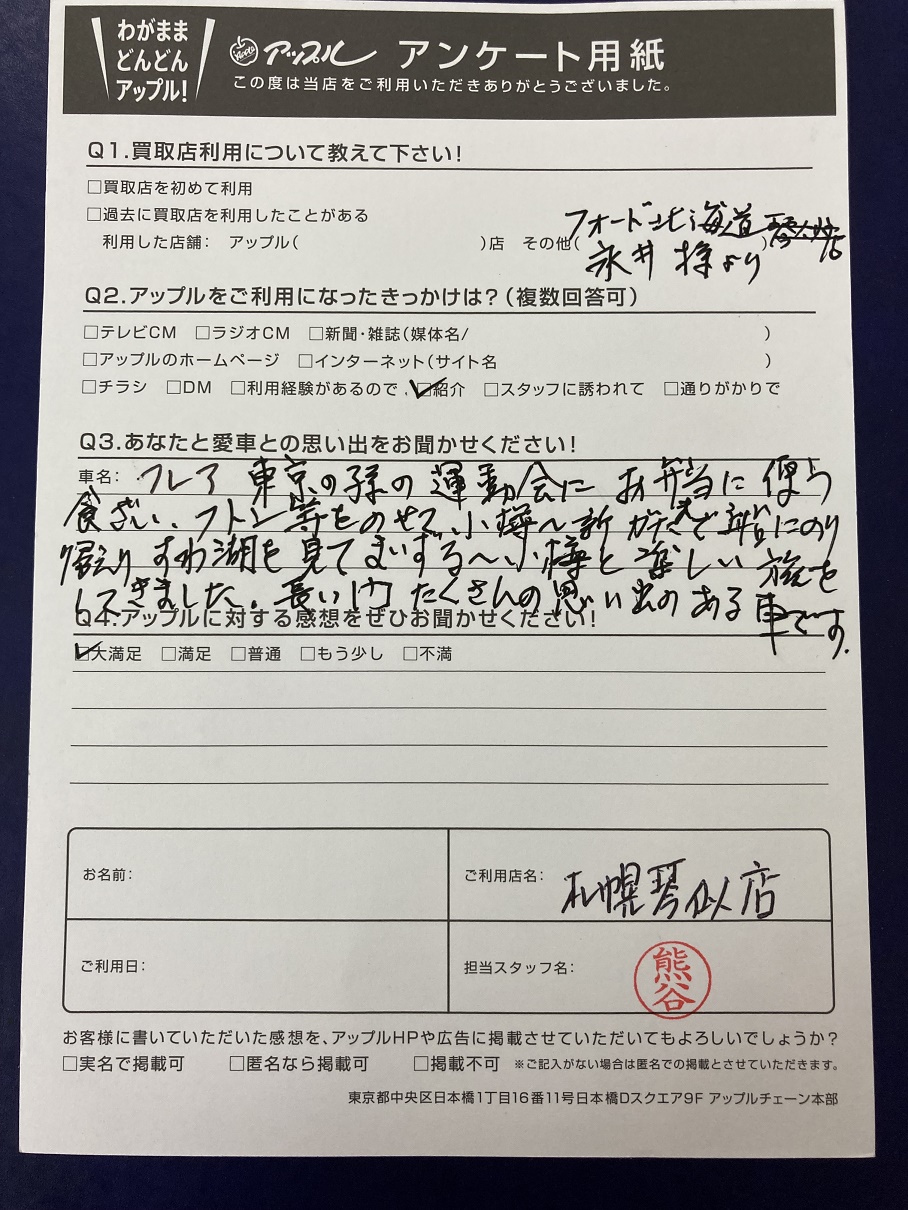 わがまま
どんどん
アップル!
Apple アップル アンケート用紙
この度は当店をご利用いただきありがとうございました。
Q1.買取店利用について教えて下さい!
□買取店を初めて利用
□過去に買取店を利用したことがある
利用した店舗: アップル( )店 その他( フォード北海道 )
永井 様より
Q2.アップルをご利用になったきっかけは?(複数回答可)
□テレビCM □ラジオCM □新聞・雑誌(媒体名/ )
□アップルのホームページ □インターネット(サイト名 )
□チラシ □DM □利用経験があるので ☑紹介 □スタッフに誘われて □通りがかりで
Q3.あなたと愛車との思い出をお聞かせください!
車名: フレア 東京の孫の運動会にお弁当に使う
食ざい、フトン等をのせて小樽〜新ガタまで にのり
帰えりすわ湖を見てまいずる〜小樽と楽しい旅を
してきました。長い間たくさんの思い出のある車です.
Q4.アップルに対する感想をぜひお聞かせください!
☑大満足 □満足 □普通 □もう少し □不満
お名前:
ご利用店名: 札幌琴似店
ご利用日:
担当スタッフ名: 熊谷
お客様に書いていただいた感想を、アップルHPや広告に掲載させていただいてもよろしいでしょうか?
□実名で掲載可 □匿名なら掲載可 □掲載不可 ※ご記入がない場合は匿名での掲載とさせていただきます。
東京都中央区日本橋1丁目16番11号日本橋Dスクエア9F アップルチェーン本部